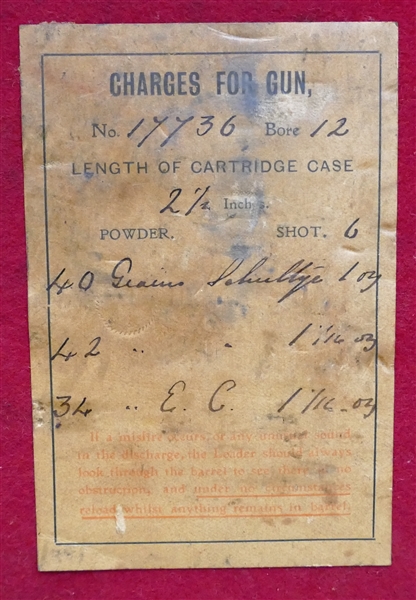 CHARGES FOR GUN,
No. 17736 Bore 12
LENGTH OF CARTRIDGE CASE
2½ Inches.
POWDER. SHOT. 6
40 Grains Schultze 1 oz
42 " " 1 1/16 oz
34 " E. C. 1 1/16 oz
If a misfire occurs, or any unusual sound
in the discharge, the Loader should always
look through the barrel to see there is no
obstruction, and under no circumstances
reload whilst anything remains in barrel.